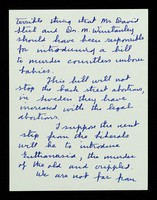 terrible thing that Mr David
Steel and Dr. M. Winstanley
should have been responsible
for introducing a bill
to murder countless unborn
babies.
This bill will not
stop the back street abortions,
in Sweden they have
increased with the legal
abortions.
I suppose the next
step from the Liberals
will be to introduce
Euthanasia, the murder
of the old and crippled.
We are not far from